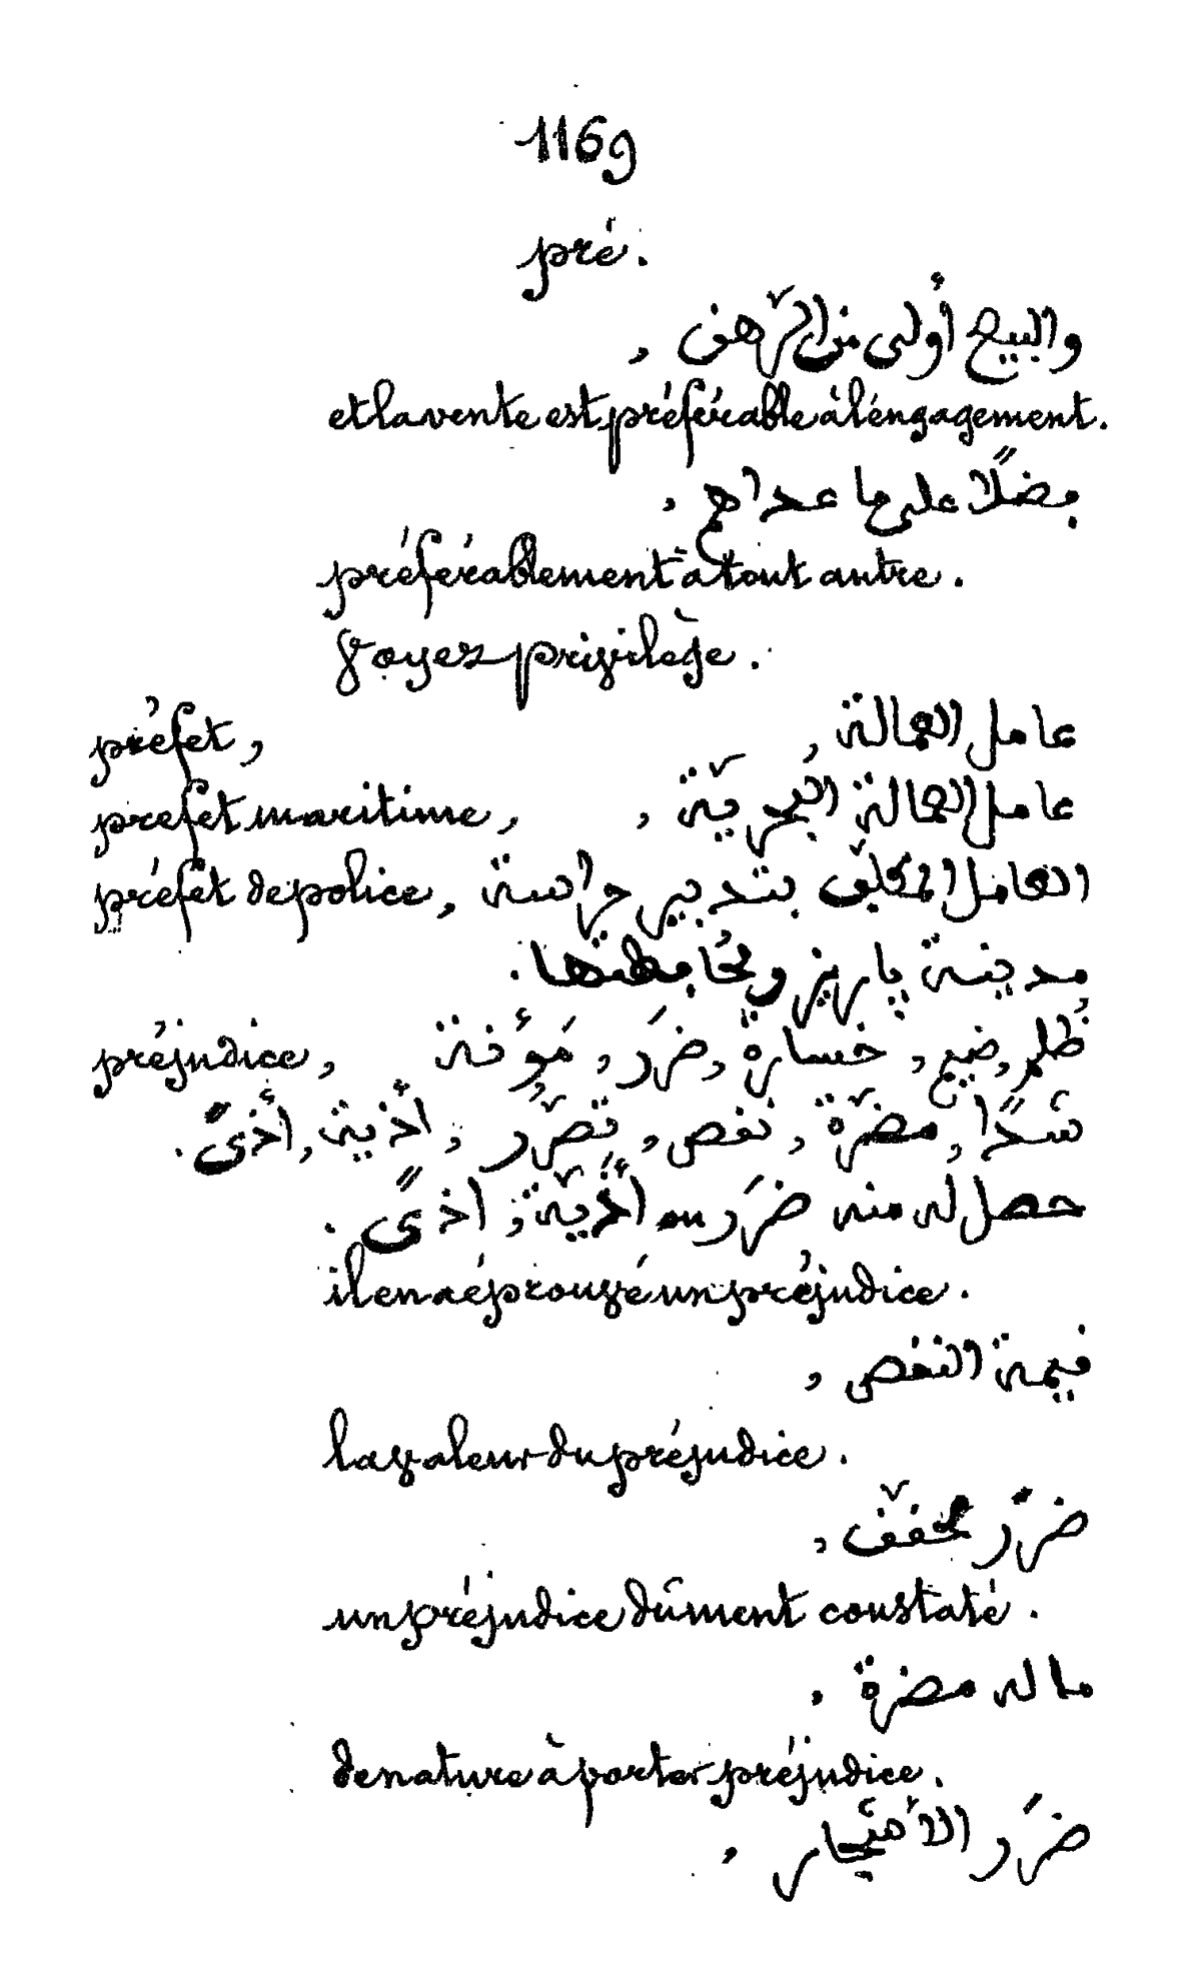 1169
pré.
والبيع أولى من الرّهن ,
et la vente est préférable à l'engagement.
فضلًا على ما عداهم ,
préférablement à tout autre.
Voyez privilège.
préfet, عامل العمالة ,
préfet maritime, عامل العمالة البَحريّة ,
préfet de police, العامل المكلّف بتدبير حراسة
مدينة پاريز ومُحافظتها.
préjudice, ظُلم, ضيع, خسارة, ضرَر, مَؤُنة
شدًا, مضرّة, نقص, تضرّر, أذية, أذىً.
حصل له منه ضرَر أذيّة, اذىً.
il en a éprouvé un préjudice.
قيمة النقص ,
la valeur du préjudice.
ضرَر محقّق ,
un préjudice dûment constaté.
ما له مضرة ,
de nature à porter préjudice.
ضرَر